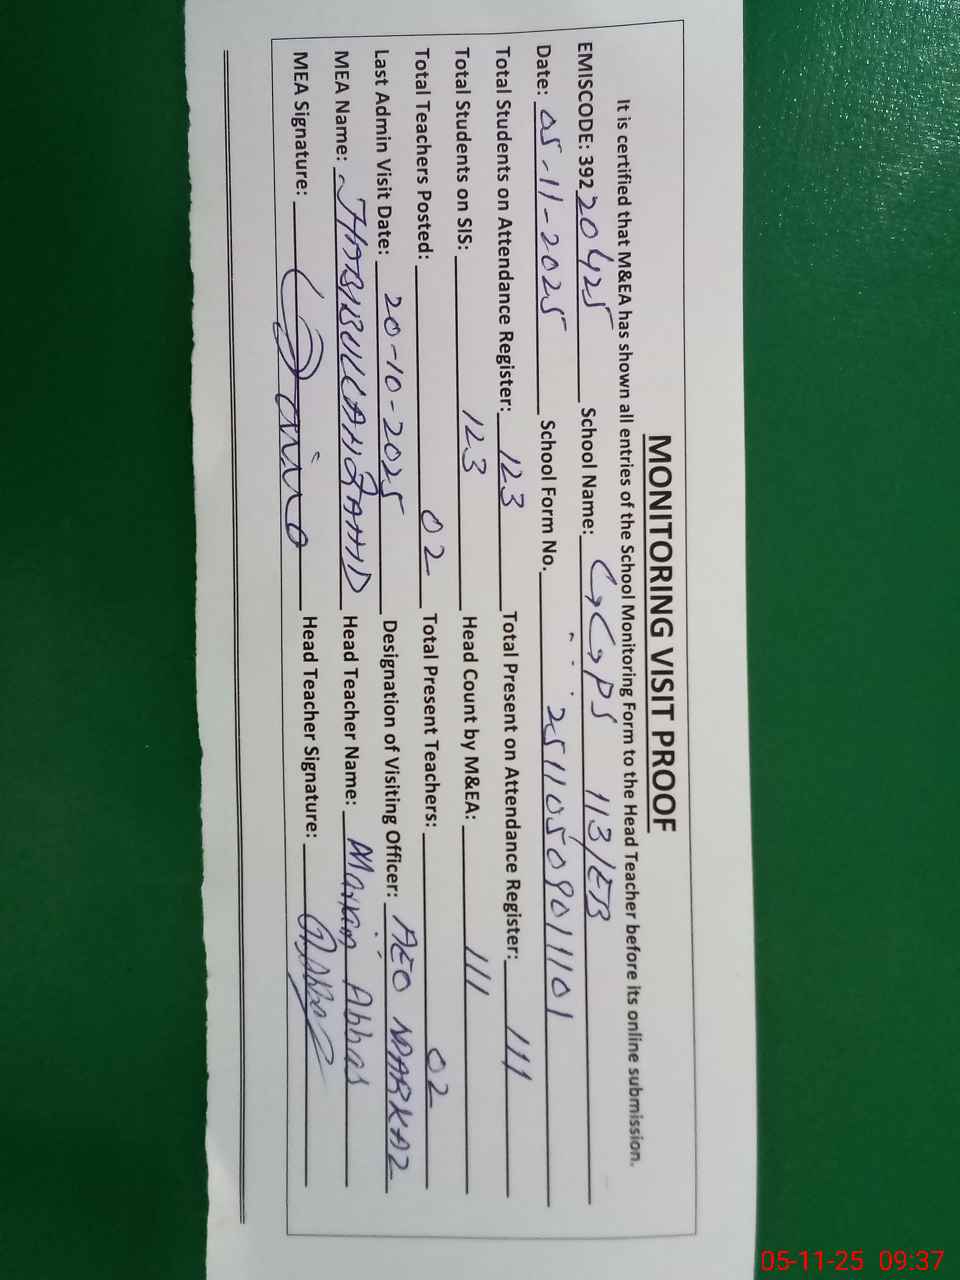 MONITORING VISIT PROOF
It is certified that M&EA has shown all entries of the School Monitoring Form to the Head Teacher before its online submission.
EMISCODE: 39220425 School Name: GGPS 113/EB
Date: 05-11-2025 School Form No. 2511050901101
Total Students on Attendance Register: 123 Total Present on Attendance Register: 111
Total Students on SIS: 123 Head Count by M&EA: 111
Total Teachers Posted: 02 Total Present Teachers: 02
Last Admin Visit Date: 20-10-2025 Designation of Visiting Officer: AEO MARKAZ
MEA Name: HABIBULLAH ZAHID Head Teacher Name: Maria Abbas
MEA Signature: Head Teacher Signature:
05-11-25 09:37